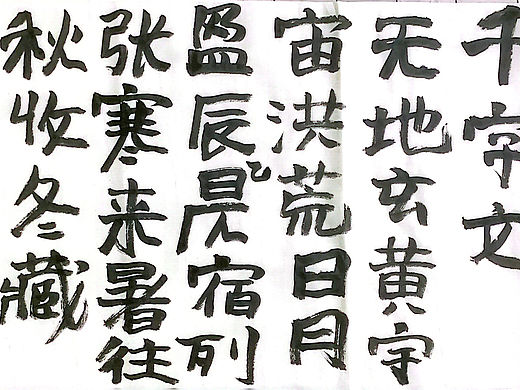 千字文
天地玄黄宇
宙洪荒日月
盈辰昃宿列
张寒来暑往
秋收冬藏